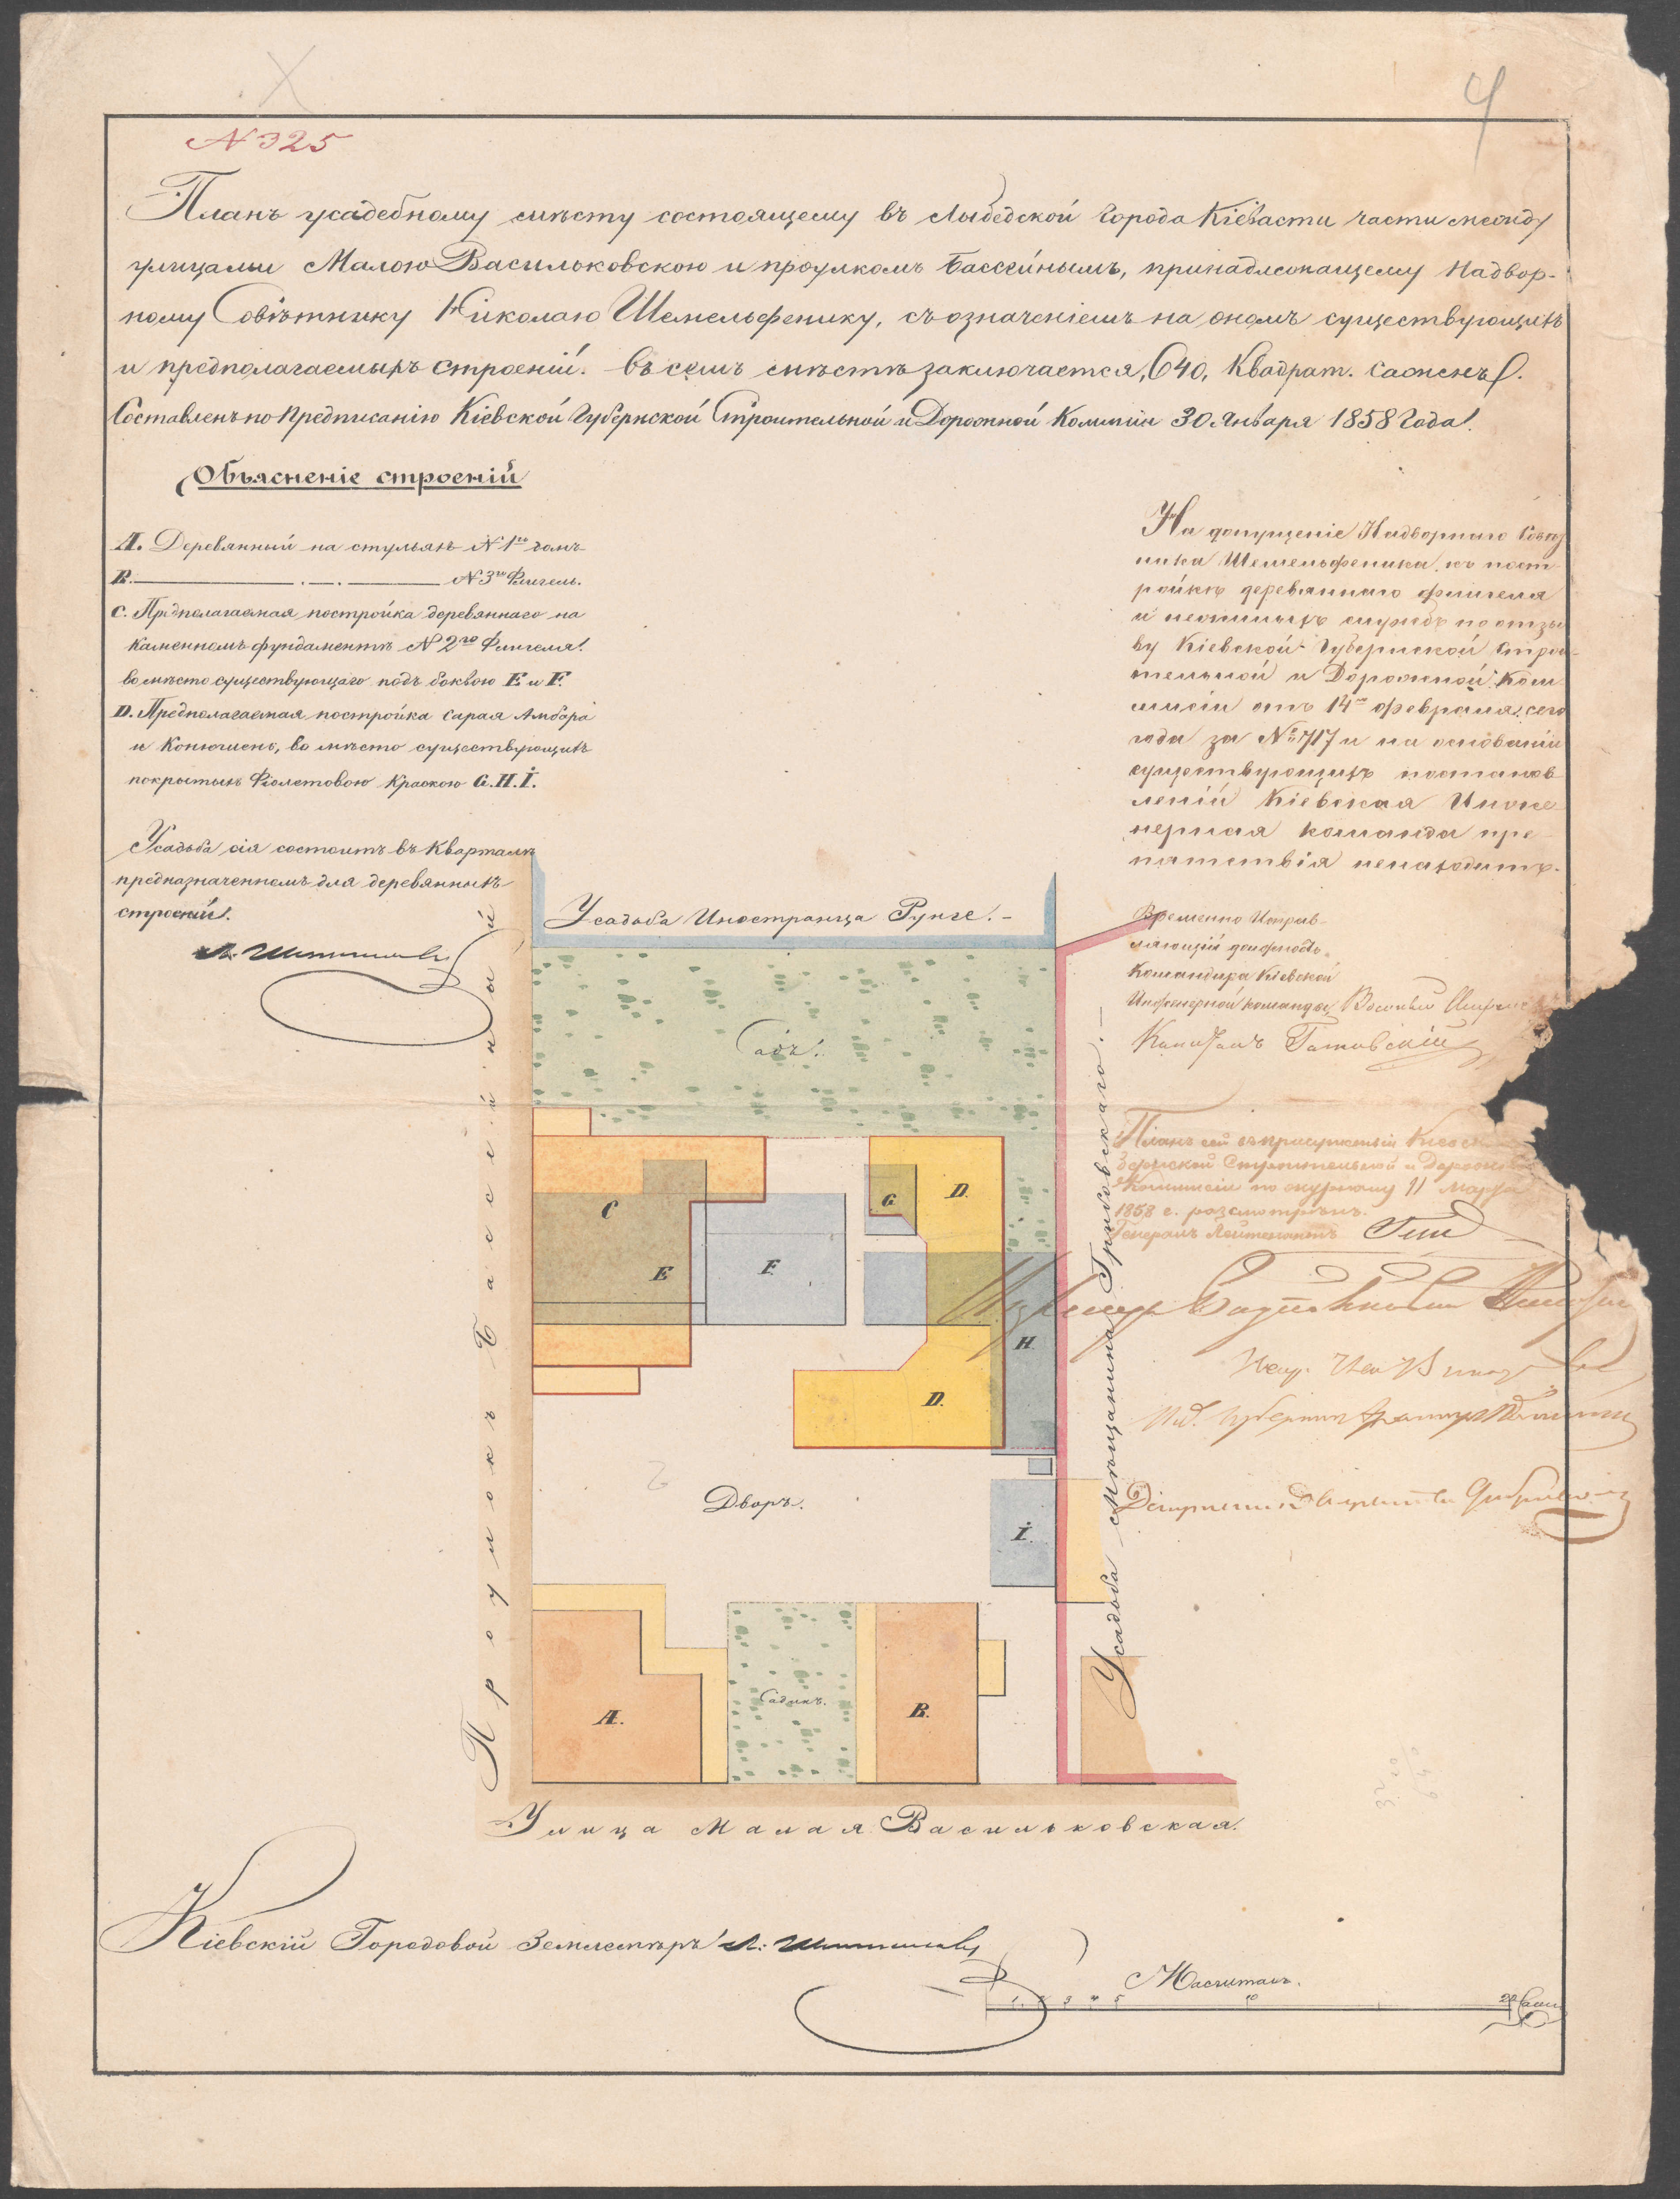 N 325
4
Планъ усадебному мѣсту состоящему въ Лыбедской города Кіева части между
улицами Малою Васильковскою и проулкомъ Бассейнымъ, принадлежащему Надвор-
ному Совѣтнику Николаю Шемельфенику, съ означеніемъ на ономъ существующихъ
и предполагаемыхъ строеній. Въ семъ мѣстѣ заключается, 640, Квадрат. Сажень.
Составленъ по Предписанію Кіевской Губернской Строительной и Дорожной Коммиіи 30 Января 1858 Года.
Объясненіе строеній
A. Деревянный на стульяхъ N 1го домъ
B. N 3го Флигель.
C. Предполагаемая постройка деревяннаго на
каменномъ фундаментѣ N 2го Флигеля.
во мѣсто существующаго подъ буквою E и F.
D. Предполагаемая постройка Сарая Амбара
и Конюшень, во мѣсто существующихъ
покрытыхъ Фіолетовою Краскою G. H. I.
Усадьба сія состоитъ въ Кварталѣ
предназначенномъ для деревянныхъ
строеній.
На допущеніе Надворнаго Совѣт
ника Шемельфеника, къ пост
ройкѣ деревяннаго флигеля
и нежилыхъ службъ по отзы
ву Кіевской Губернской Строи-
тельной и Дорожной Ком
мисіи отъ 14го февраля, сего
года за № 717 и на основаніи
существующихъ постанов
леній Кіевская Инже
нерная команда пре
пятствія ненаходитъ.
Временно Исправ-
ляющій должность
Командира Кіевской
Инженерной команды
Капитанъ
Планъ сей въ присутствіи Кіевск
Губернской Строительной и Дорожной
Коммисіи по журналу 11 Марта
1858 г. разсмотрѣнъ.
Генералъ Лейтенантъ
Усадьба Иностранца Рунге.
Садъ.
C
E
F.
G.
D.
H
D.
I.
Дворъ.
A.
Садикъ.
B.
Проулокъ Бассейный
Усадьба мѣщанина Грибовскаго.
Улица Малая Васильковская.
Кіевскій Городовой Землемѣръ
Масштабъ.
1 2 3 4 5 10 20 Саж